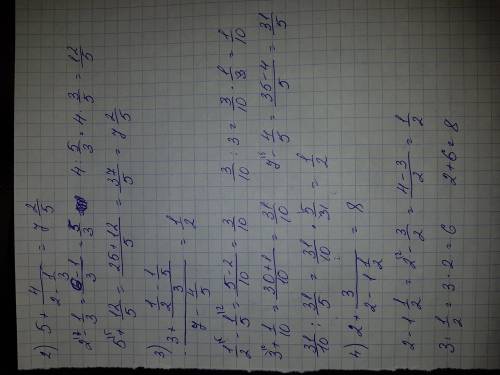 2) 5 + 4/(2 - 1/3) = 7 2/5
2 - 1/3 = 6-1/3 = 5/3 4 : 5/3 = 4 · 3/5 = 12/5
5 + 12/5 = 25+12/5 = 37/5 = 7 2/5
3) (3 + (1/2 - 1/5)/3)/(7 - 4/5) = 1/2
1/2 - 1/5 = 5-2/10 = 3/10 3/10 : 3 = 3/10 · 1/3 = 1/10
3 + 1/10 = 30+1/10 = 31/10 7 - 4/5 = 35-4/5 = 31/5
31/10 : 31/5 = 31/10 · 5/31 = 1/2
4) 2 + 3/(2 - 1 1/2) = 8
2 - 1 1/2 = 2 - 3/2 = 4-3/2 = 1/2
3 : 1/2 = 3 · 2 = 6 2+6 = 8